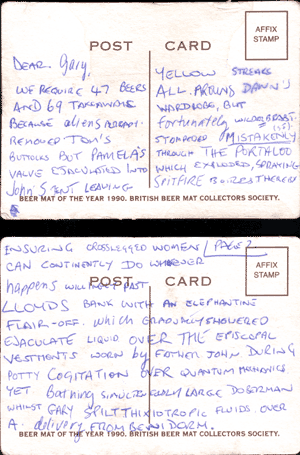 POST CARD
AFFIX
STAMP
DEAR Gary,
WE REQUIRE 47 BEERS
AND 69 TAKEAWAYS
BECAUSE aliens ALREADY
REMOVED TOM'S
BUTTOCKS BUT PAMELA'S
VALVE EJACULATED INTO
John's TENT LEAVING
YELLOW STREAKS
ALL AROUND DAWN'S
WARDROBE, BUT
fortunately WILDEBEEST
STOMPED MISTAKENLY
THROUGH THE PORTALOO
WHICH EXPLODED, SPRAYING
SPITFIRE THEREBY
BEER MAT OF THE YEAR 1990. BRITISH BEER MAT COLLECTORS SOCIETY.
INSURING CROSSLEGGED WOMEN PAGE 2
CAN CONTINENTLY DO WHATEVER
happens WILLINGLY PAST
LLOYDS BANK WITH AN ELEPHANTINE
FLAIR-OFF. WHICH GRADUALLY SHOWERED
EJACULATE LIQUID OVER THE EPISCOPAL
VESTMENTS WORN by FATHER JOHN DURING
POTTY COGITATION OVER QUANTUM MECHANICS
YET. Bathing SIMULTANEOUSLY LARGE DOBERMAN
WHILST GARY SPILT THIXIOTROPIC FLUIDS OVER
A delivery FROM BENIDORM.
POST CARD
AFFIX
STAMP
BEER MAT OF THE YEAR 1990. BRITISH BEER MAT COLLECTORS SOCIETY.